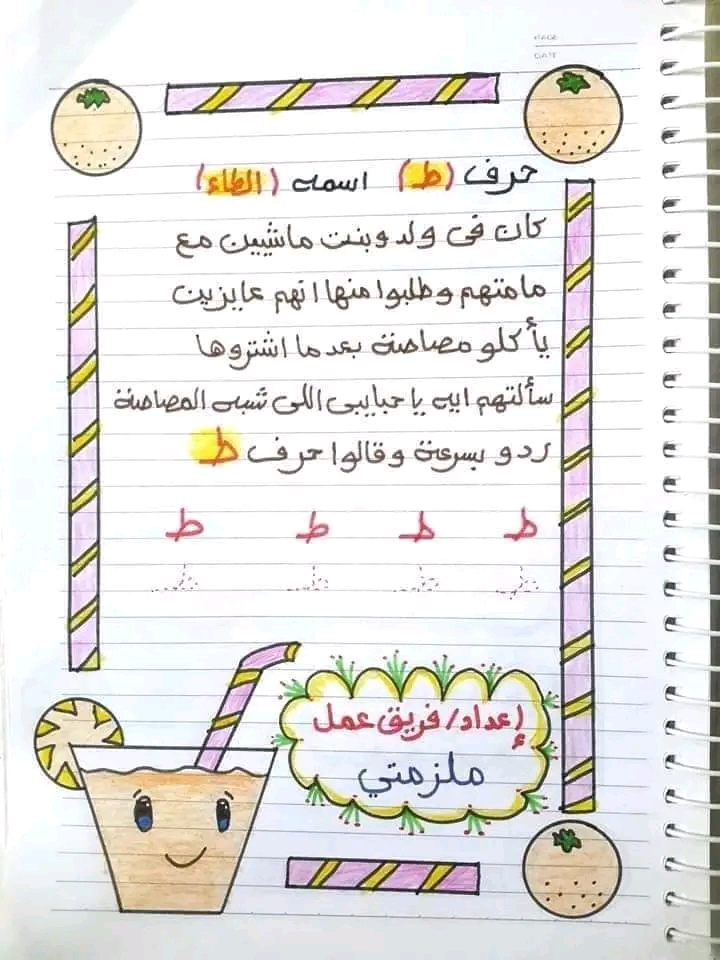 PAGE
DATE
حرف (ط) اسمه (الطاء)
كان في ولد وبنت ماشيين مع
مامتهم وطلبوا منها انهم عايزين
يأكلو مصاصة بعد ما اشتروها
سألتهم ايه يا حبايبى اللى شبه المصاصة
ردو بسرعة وقالوا حرف ط
ط ط ط ط
ط ط ط ط
إعداد/فريق عمل
ملزمتي